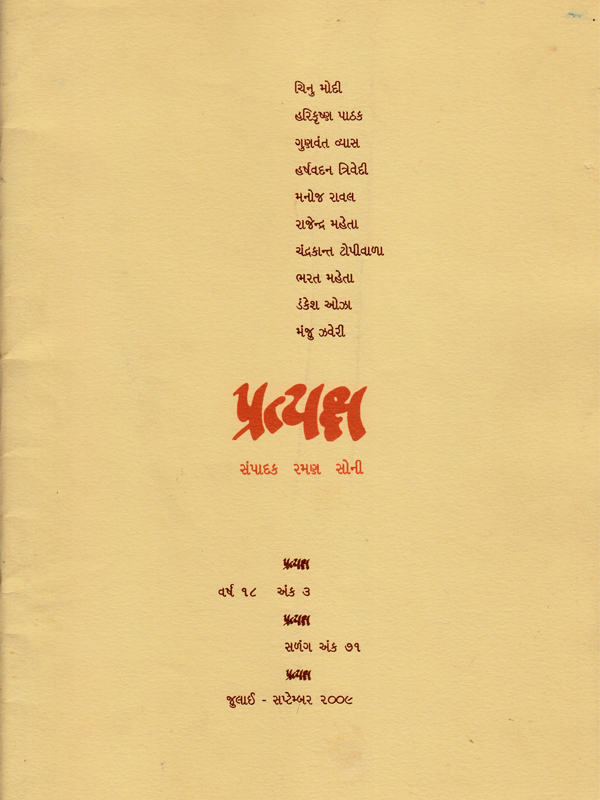 ચિનુ મોદી
હરિકૃષ્ણ પાઠક
ગુણવંત વ્યાસ
હર્ષવદન ત્રિવેદી
મનોજ રાવલ
રાજેન્દ્ર મહેતા
ચંદ્રકાન્ત ટોપીવાળા
ભરત મહેતા
ડંકેશ ઓઝા
મંજુ ઝવેરી
પ્રત્યક્ષ
સંપાદક રમણ સોની
પ્રત્યક્ષ
વર્ષ ૧૮ અંક ૩
પ્રત્યક્ષ
સળંગ અંક ૭૧
પ્રત્યક્ષ
જુલાઈ - સપ્ટેમ્બર ૨૦૦૯